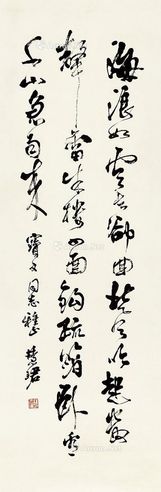 海浪如雲去卻回北風吹起數
聲雷朱樓四面鈎疏箔卧看
千山急雨來
同志雅正